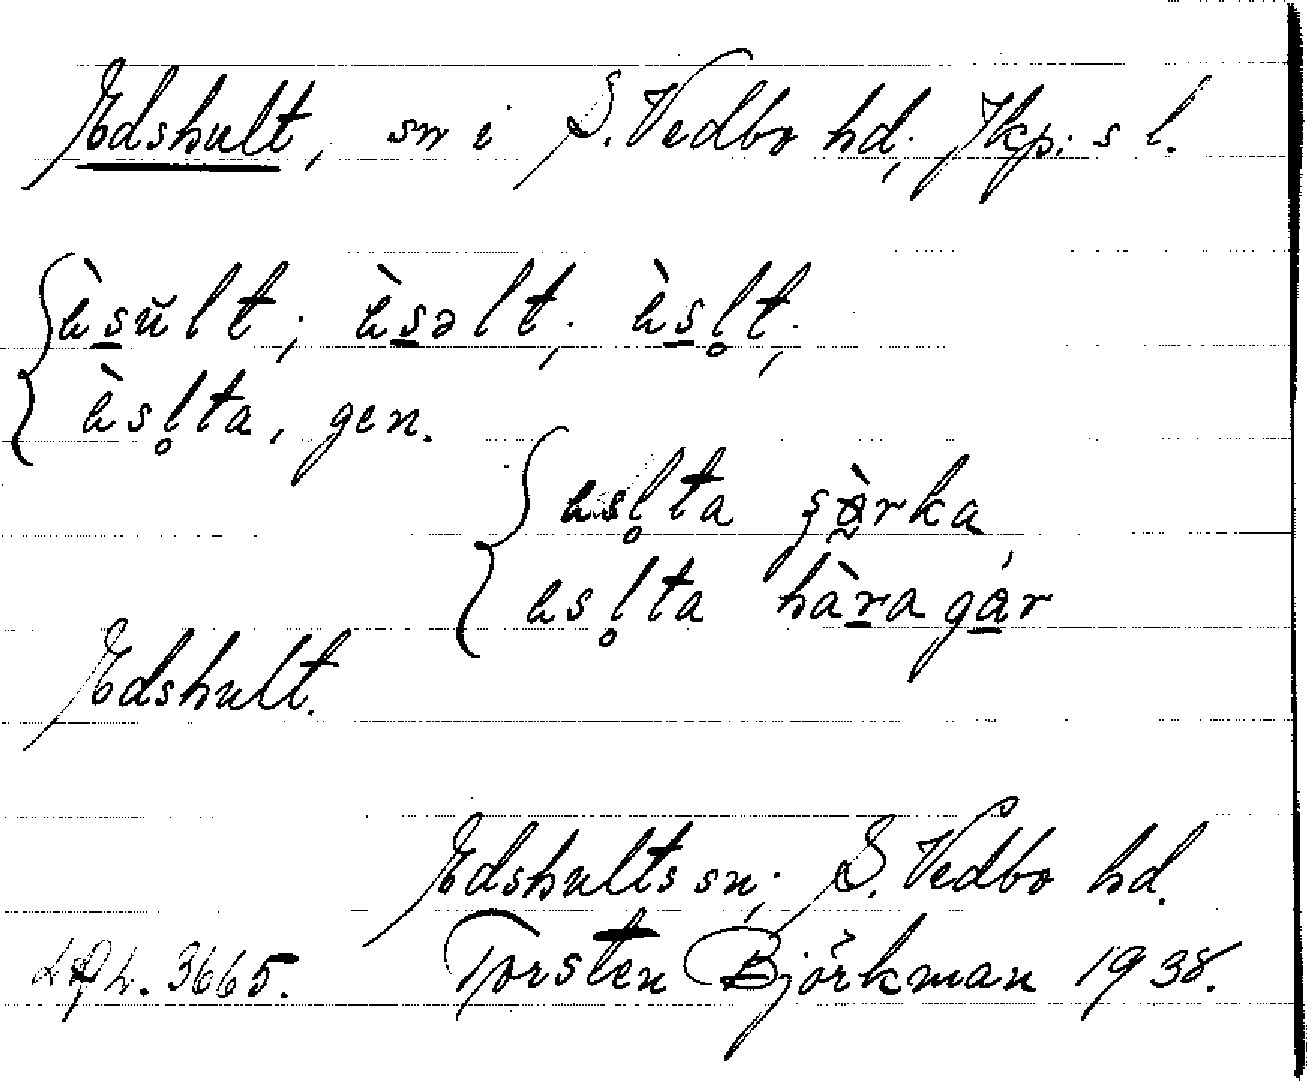 Edshult, sn i S. Vedbo hd; Jkp:s l.
èsŭlt; èsəlt; èsl̥t;
èsl̥ta, gen.
esl̥ta
esl̥ta hàragár
Edshult.
Edshults sn; S. Vedbo hd.
3665. Torsten Björkman 1938.